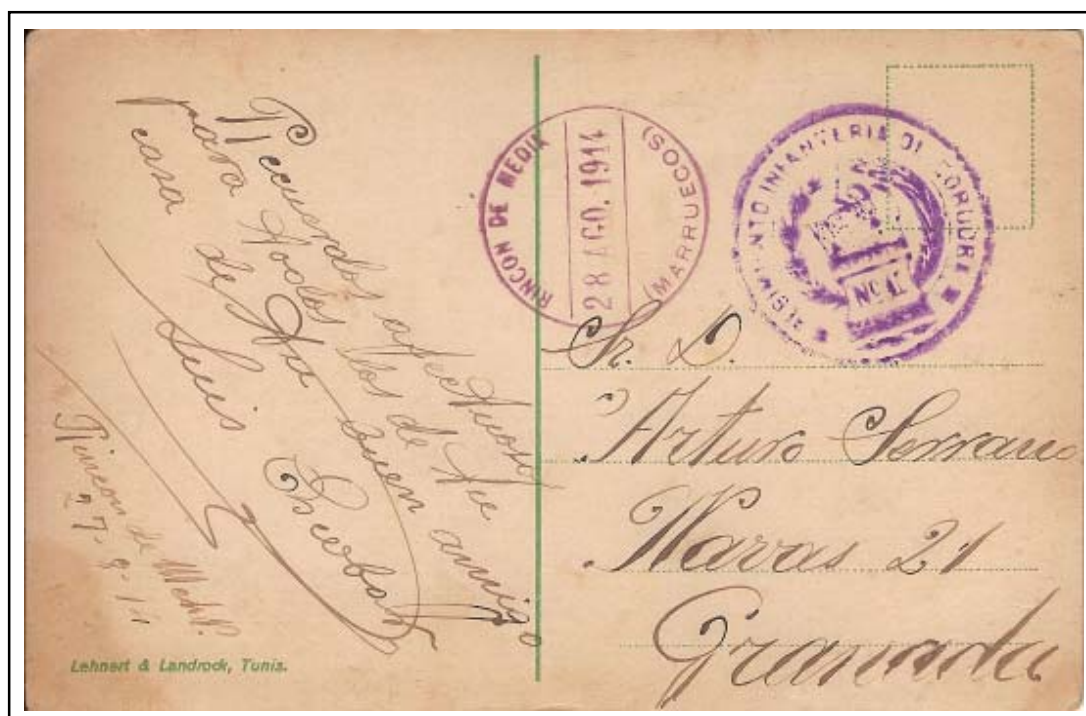 Recuerdos afectuosos
para todos los de tu
casa de tu buen amigo
Luis
Rincon de Medik
27-8-14
Lehnert & Landrock, Tunis.
RINCON DE MEDIK
28 AGO. 1914
(MARRUECOS)
INFANTERIA
Nº
Sr. D.
Arturo Serrano
Navas 21
Granada